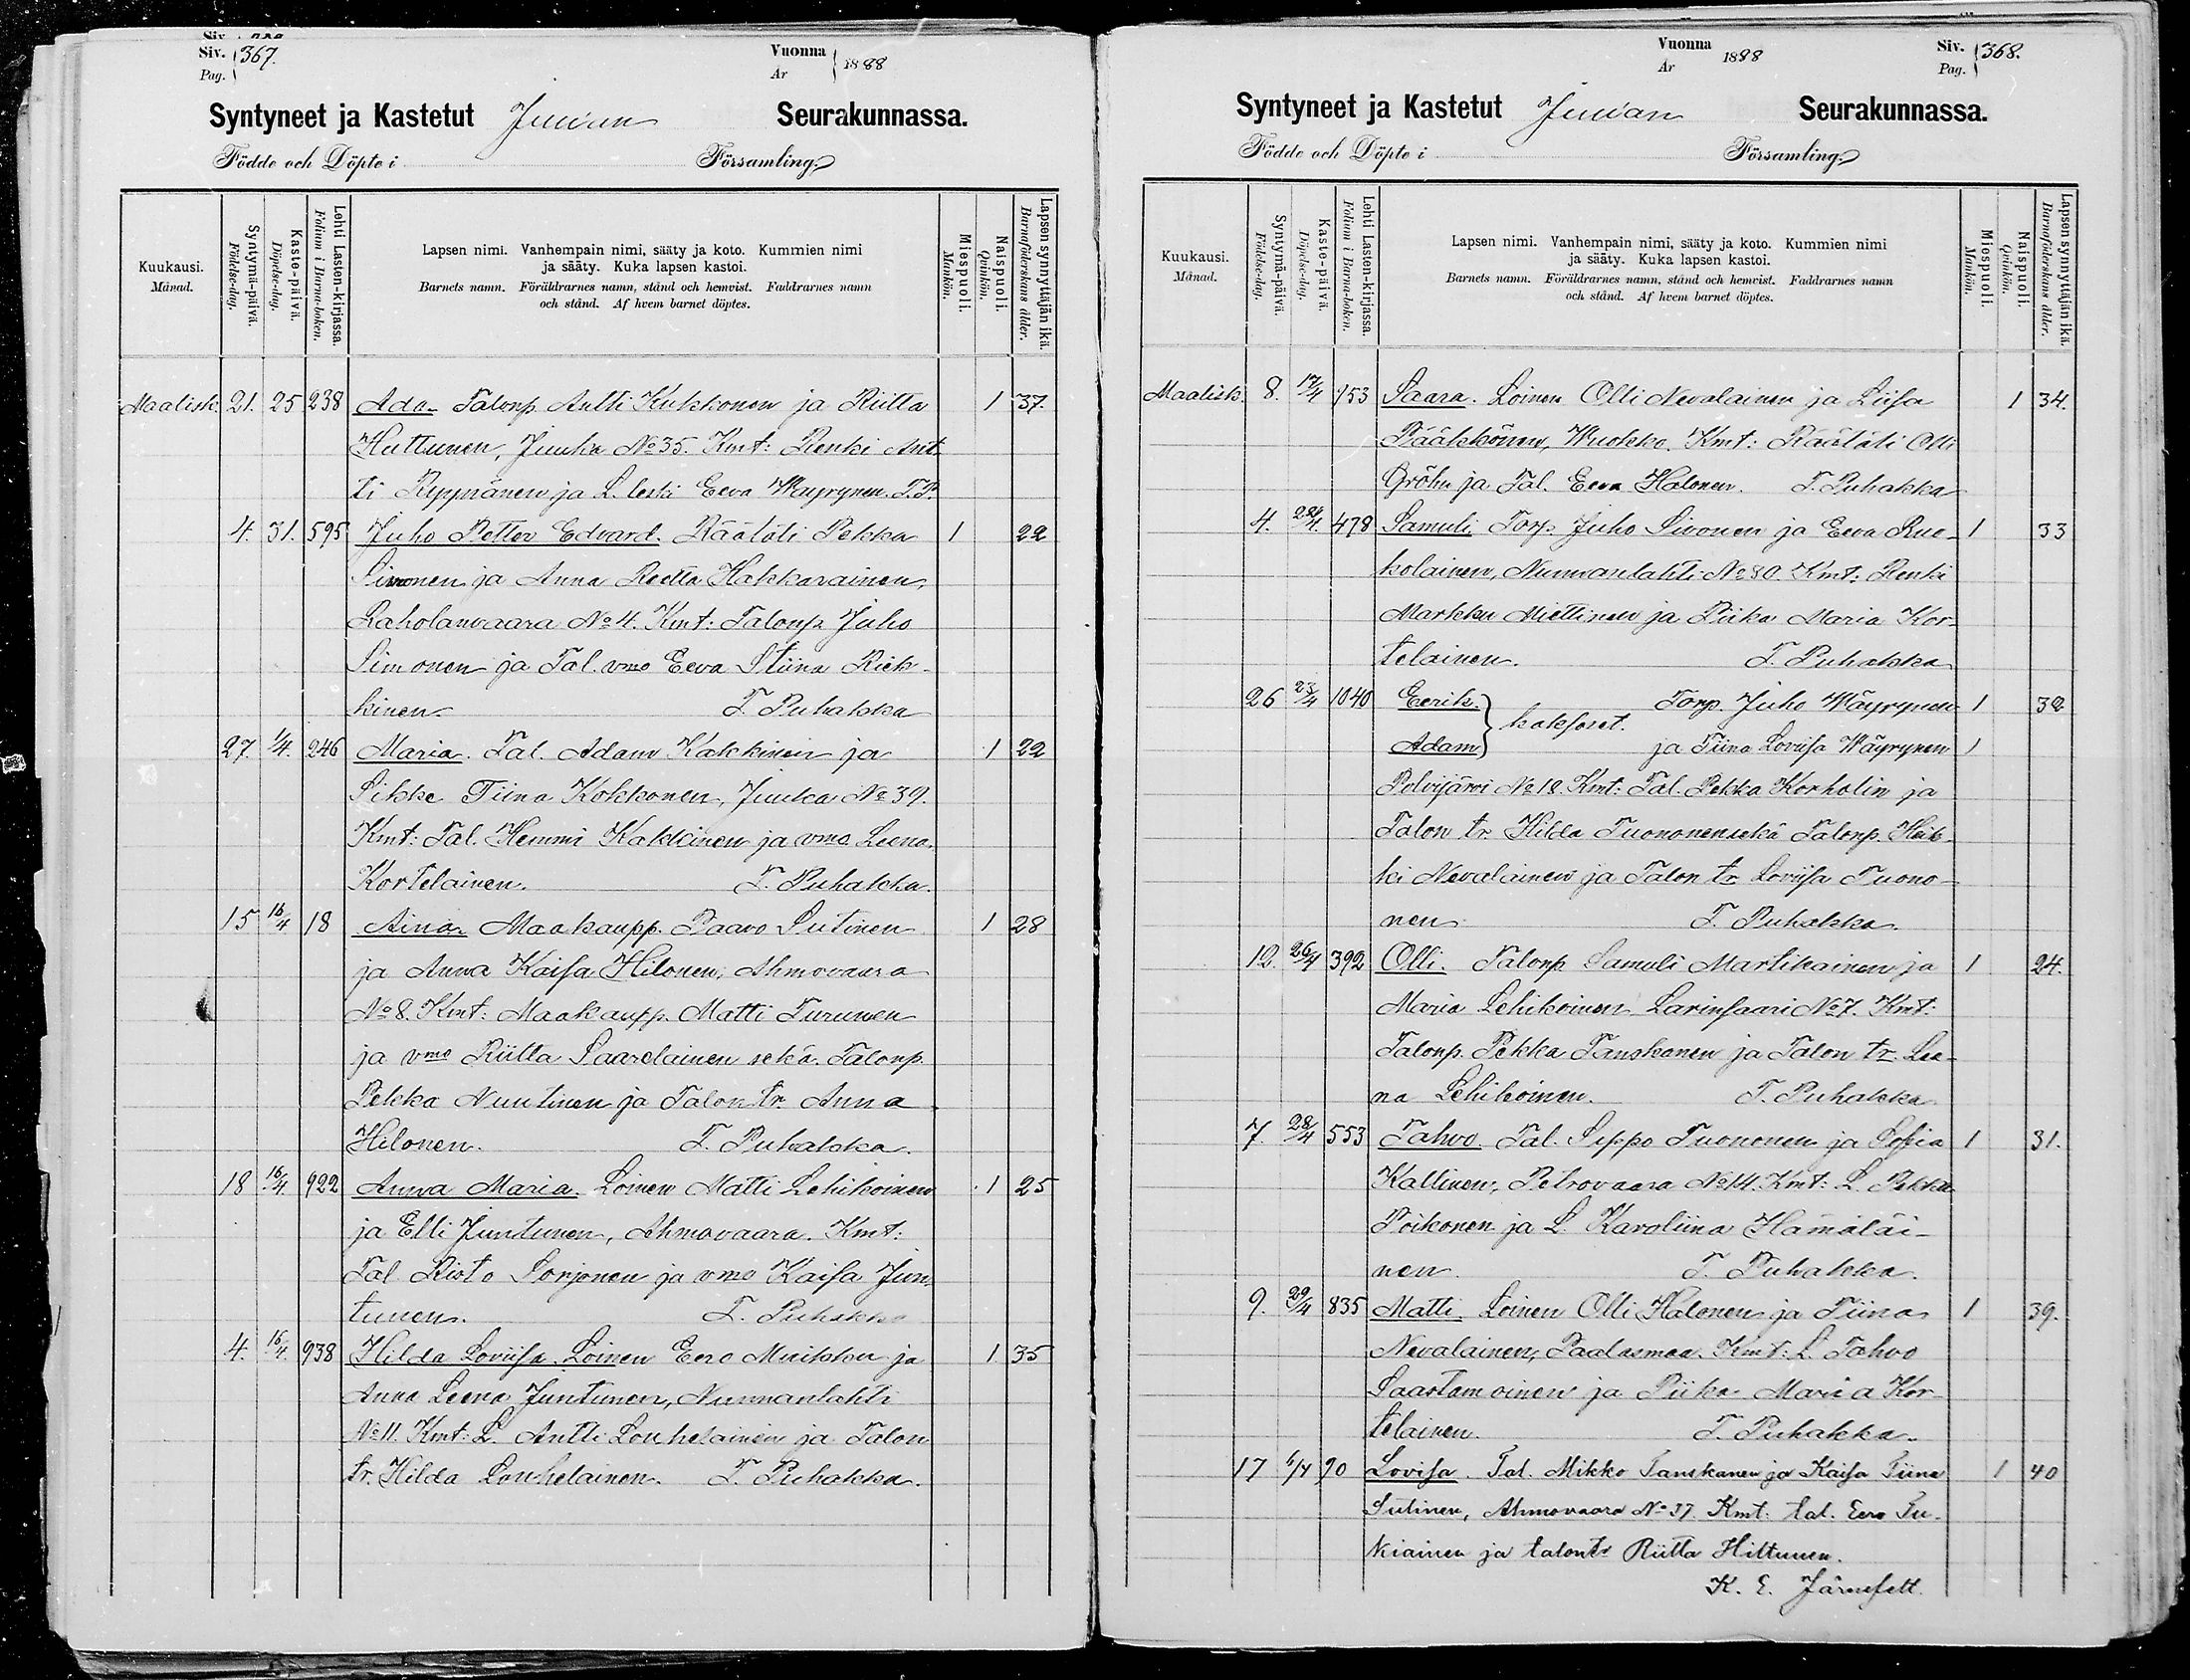 Siv. 367.
Pag.
Vuonna 1888
År
Syntyneet ja Kastetut Juuan Seurakunnassa.
Födde och Döpte i Församling.
Kuukausi.
Månad.
Syntymä-päivä.
Födelse-dag.
Kaste-päivä.
Döpelse-dag.
Lehti Lasten-kirjassa.
Folium i Barna-boken.
Lapsen nimi. Vanhempain nimi, sääty ja koto. Kummien nimi
ja sääty. Kuka lapsen kastoi.
Barnets namn. Föräldrarnes namn, stånd och hemvist. Faddrarnes namn
och stånd. Af hvem barnet döptes.
Miespuoli.
Mankön.
Naispuoli.
Qvinkön.
Lapsen synnyttäjän ikä.
Barnaföderskans ålder.
Maalisk. 21. 25 238 Ada. Talonp. Antti Kukkonen ja Riitta 1 37.
Huttunen, Juuka No 35. Kmt: Renki Ant
ti Ryppänen ja L. leski Eeva Wäyrynen. T.P.
4. 31. 595 Juho Petter Edvard. Räätäli Pekka 1 22
Simonen ja Anna Reetta Hakkarainen,
Raholanvaara No 4. Kmt: Talonp. Juho
Simonen ja Tal. vmo Eeva Stiina Riek-
kinen. T. Puhakka
27. 1/4. 246 Maria. Tal. Adam Kakkinen ja 1 22
Sikke Tiina Kokkonen, Juuka No 39.
Kmt: Tal. Hemmi Kakkinen ja vmo Leena
Kortelainen. T. Puhakka.
15 16/4 18 Aina. Maakaupp. Paavo Sutinen 1 28
ja Anna Kaisa Hilonen, Ahmovaara
No 8. Kmt: Maakaupp. Matti Turunen
ja vmo Riitta Saarelainen sekä Talonp.
Pekka Nuutinen ja Talon tr. Anna
Hilonen. T. Puhakka.
18 16/4. 922 Anna Maria. Loinen Matti Lehikoinen 1 25
ja Elli Juntunen, Ahmovaara. Kmt:
Tal Risto Sorjonen ja vmo Kaisa Jun-
tunen. T. Puhakka
4. 16/4. 938 Hilda Loviisa. Loinen Eero Muikku ja 1 35
Anna Leena Juntunen, Nunnanlahti
No 11. Kmt: L. Antti Louhelainen ja Talon
tr. Hilda Louhelainen. T. Puhakka.
Vuonna 1888
År
Siv. 368.
Pag.
Syntyneet ja Kastetut Juuan Seurakunnassa.
Födde och Döpte i Församling.
Kuukausi.
Månad.
Syntymä-päivä.
Födelse-dag.
Kaste-päivä.
Döpelse-dag.
Lehti Lasten-kirjassa.
Folium i Barna-boken.
Lapsen nimi. Vanhempain nimi, sääty ja koto. Kummien nimi
ja sääty. Kuka lapsen kastoi.
Barnets namn. Föräldrarnes namn, stånd och hemvist. Faddrarnes namn
och stånd. Af hvem barnet döptes.
Miespuoli.
Mankön.
Naispuoli.
Qvinkön.
Lapsen synnyttäjän ikä.
Barnaföderskans ålder.
Maalisk. 8. 17/4 953 Saara. Loinen Olli Nevalainen ja Liisa 1 34.
Rääkkönen, Wuokko. Kmt: Räätäli Olli
Gröhn ja Tal. Eeva Halonen. T. Puhakka
4. 478 Samuli. Torp. Juho Sivonen ja Eeva Rue- 1 33
kolainen, Nunnanlahti No 80. Kmt: Renki
Markku Miettinen ja Piika Maria Kor-
telainen. T. Puhakka
26 23/4 1040 Eerik. Torp. Juho Wäyrynen 1 32
kaksoset.
Adam ja Tiina Loviisa Wäyrynen 1
Polvijärvi No 18. Kmt: Tal. Pekka Korholin ja
Talon tr. Hilda Tuononen sekä Talonp. Heik-
ki Nevalainen ja Talon tr Loviisa Tuono-
nen T. Puhakka.
12. 26/4 392 Olli. Talonp. Samuli Martikainen ja 1 24.
Maria Lehikoinen Larinsaari No 7. Kmt:
Talonp. Pekka Tanskanen ja Talon tr. Lee-
na Lehikoinen. T. Puhakka
7. 28/4 553 Tahvo. Tal. Seppo Tuononen ja Sofia 1 31.
Kallinen, Petrovaara No 14. Kmt: L. Pekka
Poikonen ja L. Karoliina Hämäläi-
nen. T. Puhakka.
9. 29/4 835 Matti. Loinen Olli Halonen ja Tiina 1 39.
Nevalainen, Paalasmaa. Kmt: L. Tahvo
Saastamoinen ja Piika Maria Kor-
telainen. T. Puhakka.
17 90 Lovisa. Tal. Mikko Tanskanen ja Kaisa Tiina 1 40
Sutinen, Ahmovaara No 37. Kmt: tal. Eero Tu-
kiainen ja talontr Riitta Hiltunen.
K. E. Järnefelt.